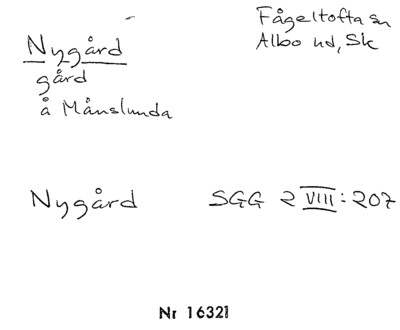 Nygård
gård
å Månslunda
Fågeltofta sn
Albo hd, Sk
Nygård SGG 2 VIII: 207
Nr 16321